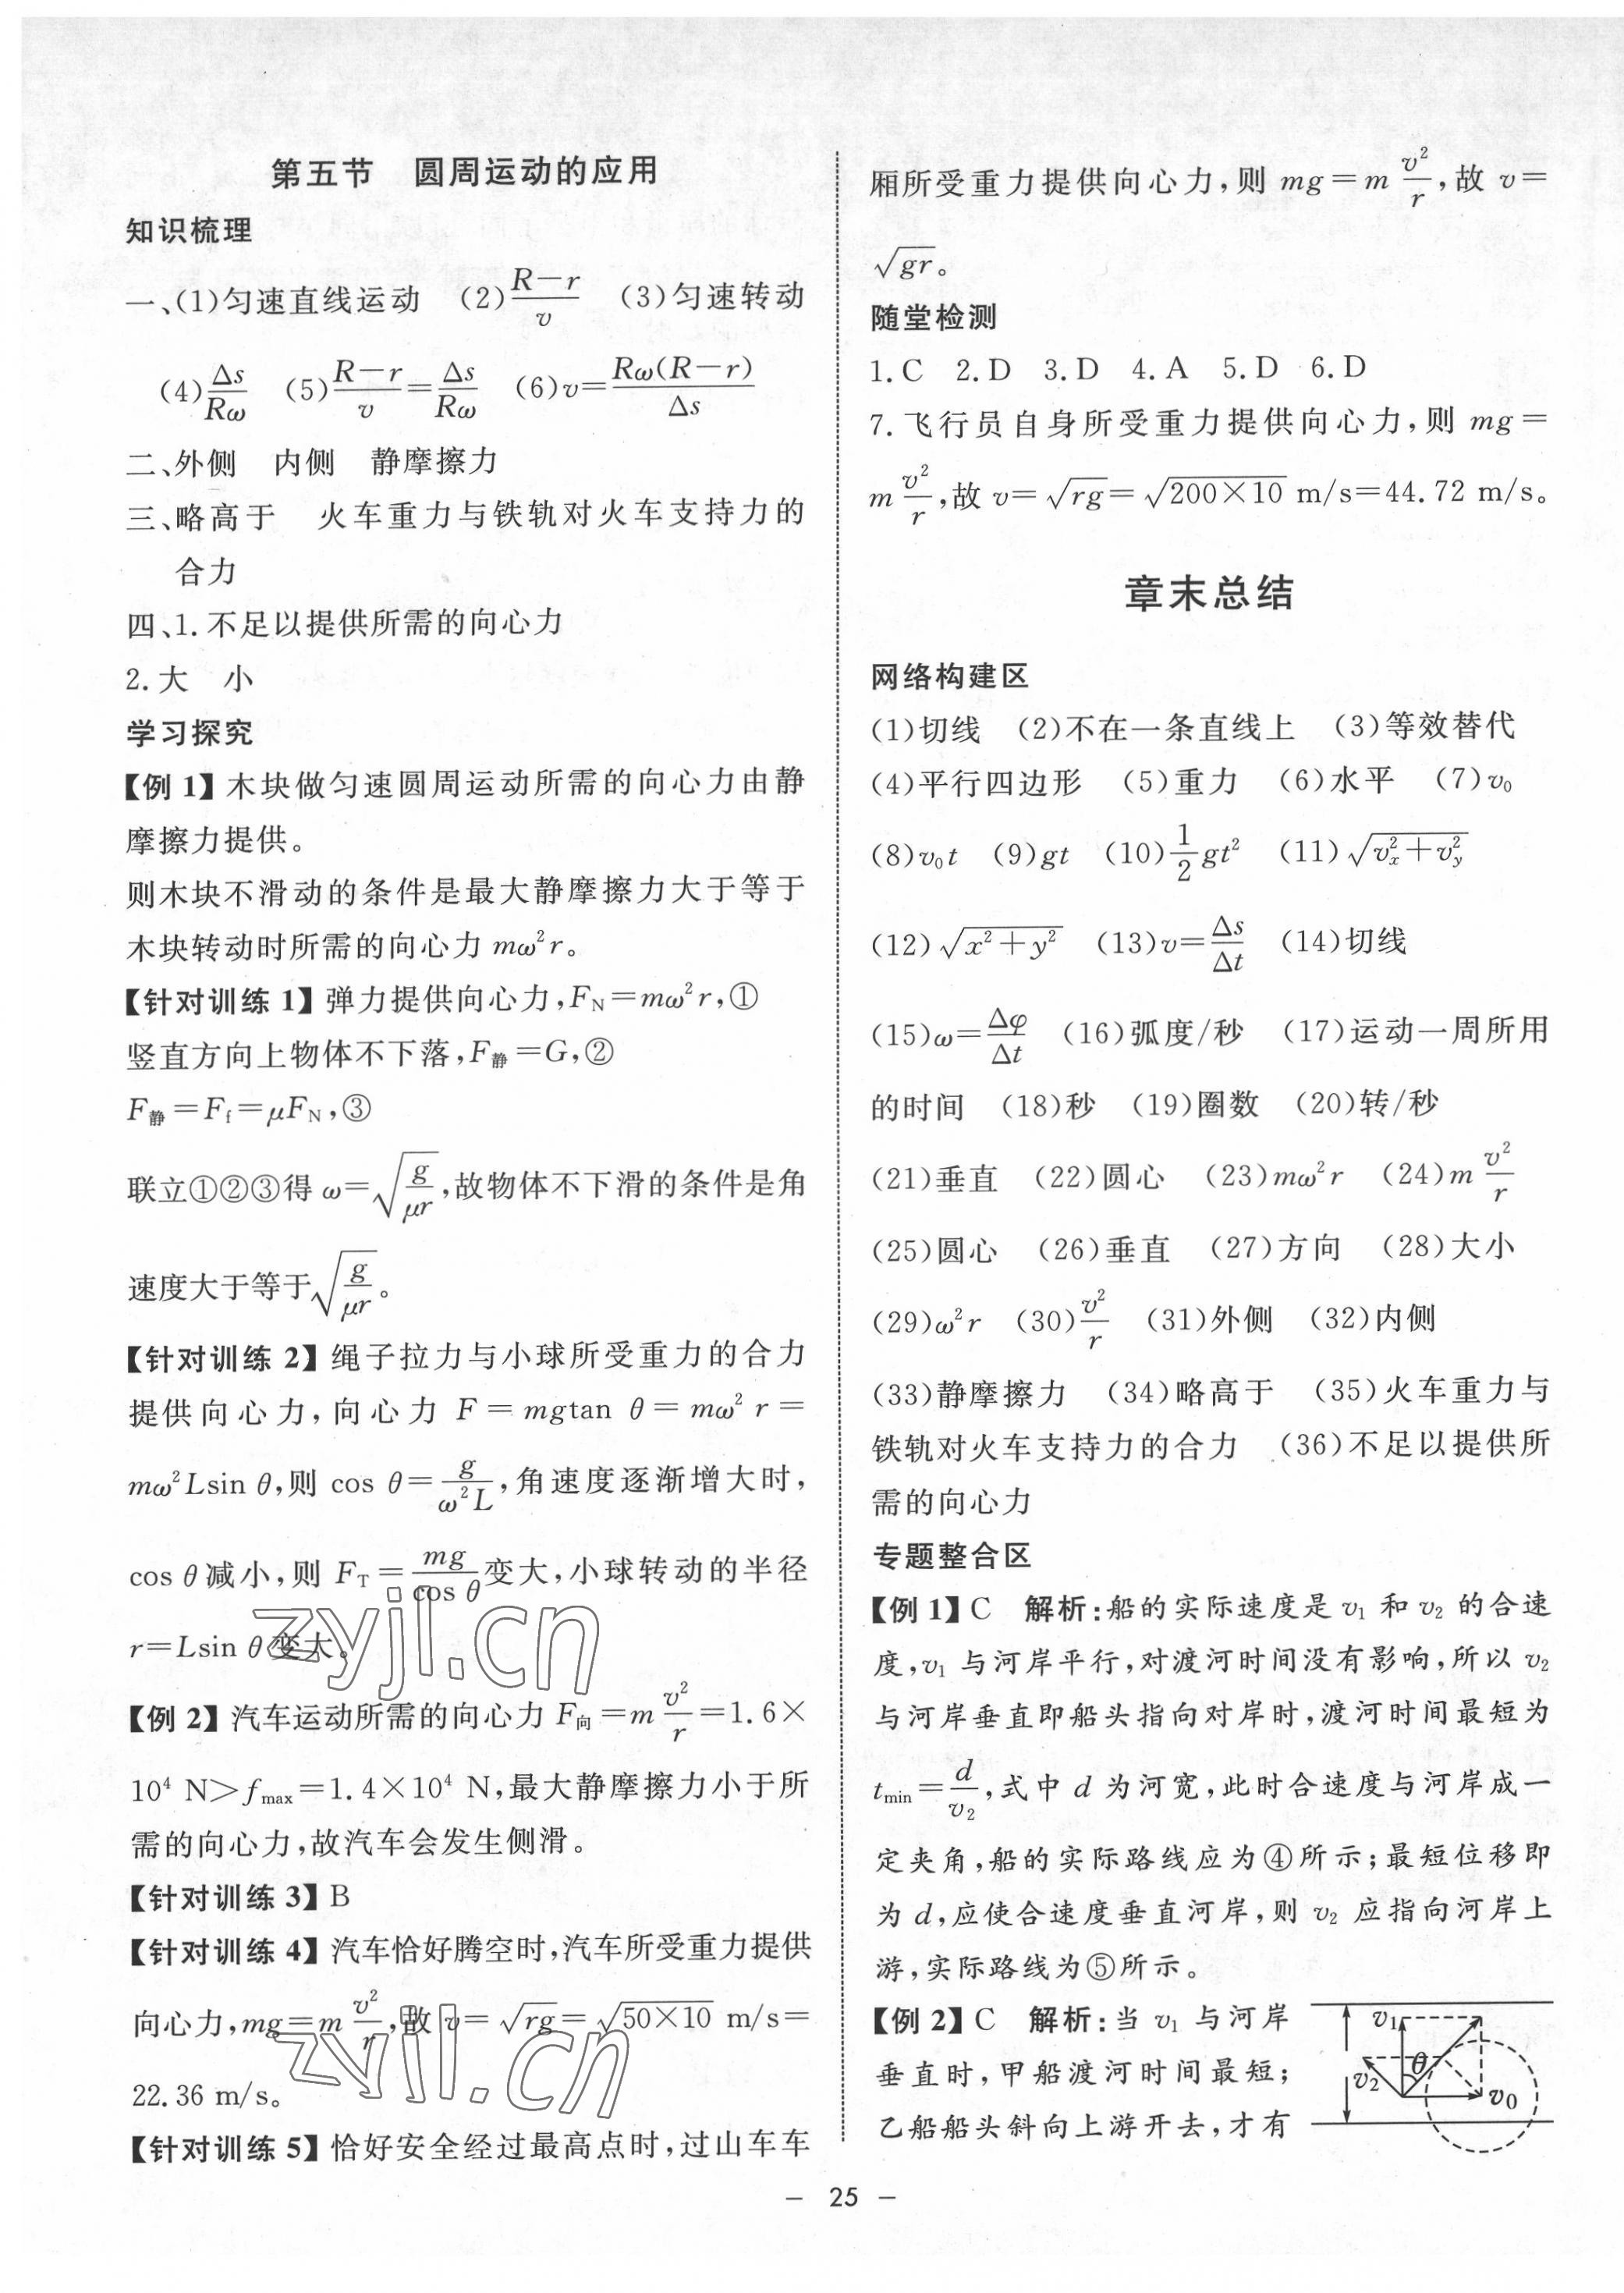 第五节　圆周运动的应用
知识梳理
一、(1)匀速直线运动　(2)$\frac{R-r}{v}$　(3)匀速转动
(4)$\frac{\Delta s}{R\omega}$　(5)$\frac{R-r}{v}=\frac{\Delta s}{R\omega}$　(6)$v=\frac{R\omega(R-r)}{\Delta s}$
二、外侧　内侧　静摩擦力
三、略高于　火车重力与铁轨对火车支持力的
合力
四、1.不足以提供所需的向心力
2.大　小
学习探究
【例1】木块做匀速圆周运动所需的向心力由静
摩擦力提供。
则木块不滑动的条件是最大静摩擦力大于等于
木块转动时所需的向心力 $m\omega^2 r$。
【针对训练1】弹力提供向心力,$F_N=m\omega^2 r$,①
竖直方向上物体不下落,$F_{静}=G$,②
$F_{静}=F_f=\mu F_N$,③
联立①②③得 $\omega=\sqrt{\frac{g}{\mu r}}$,故物体不下滑的条件是角
速度大于等于$\sqrt{\frac{g}{\mu r}}$。
【针对训练2】绳子拉力与小球所受重力的合力
提供向心力,向心力 $F=mg\tan\theta=m\omega^2 r=$
$m\omega^2 L\sin\theta$,则 $\cos\theta=\frac{g}{\omega^2 L}$,角速度逐渐增大时,
$\cos\theta$减小,则 $F_T=\frac{mg}{\cos\theta}$变大,小球转动的半径
$r=L\sin\theta$变大。
【例2】汽车运动所需的向心力 $F_{向}=m\frac{v^2}{r}=1.6\times$
$10^4$ N>$f_{max}=1.4\times10^4$ N,最大静摩擦力小于所
需的向心力,故汽车会发生侧滑。
【针对训练3】B
【针对训练4】汽车恰好腾空时,汽车所受重力提供
向心力,$mg=m\frac{v^2}{r}$,故 $v=\sqrt{rg}=\sqrt{50\times10}$ m/s=
22.36 m/s。
【针对训练5】恰好安全经过最高点时,过山车车
厢所受重力提供向心力,则 $mg=m\frac{v^2}{r}$,故 $v=$
$\sqrt{gr}$。
随堂检测
1.C　2.D　3.D　4.A　5.D　6.D
7.飞行员自身所受重力提供向心力,则 $mg=$
$m\frac{v^2}{r}$,故 $v=\sqrt{rg}=\sqrt{200\times10}$ m/s=44.72 m/s。
章末总结
网络构建区
(1)切线　(2)不在一条直线上　(3)等效替代
(4)平行四边形　(5)重力　(6)水平　(7)$v_0$
(8)$v_0t$　(9)$gt$　(10)$\frac{1}{2}gt^2$　(11)$\sqrt{v_x^2+v_y^2}$
(12)$\sqrt{x^2+y^2}$　(13)$v=\frac{\Delta s}{\Delta t}$　(14)切线
(15)$\omega=\frac{\Delta\varphi}{\Delta t}$　(16)弧度/秒　(17)运动一周所用
的时间　(18)秒　(19)圈数　(20)转/秒
(21)垂直　(22)圆心　(23)$m\omega^2 r$　(24)$m\frac{v^2}{r}$
(25)圆心　(26)垂直　(27)方向　(28)大小
(29)$\omega^2 r$　(30)$\frac{v^2}{r}$　(31)外侧　(32)内侧
(33)静摩擦力　(34)略高于　(35)火车重力与
铁轨对火车支持力的合力　(36)不足以提供所
需的向心力
专题整合区
【例1】C　解析:船的实际速度是 $v_1$ 和 $v_2$ 的合速
度,$v_1$ 与河岸平行,对渡河时间没有影响,所以 $v_2$
与河岸垂直即船头指向对岸时,渡河时间最短为
$t_{min}=\frac{d}{v_2}$,式中 $d$ 为河宽,此时合速度与河岸成一
定夹角,船的实际路线应为④所示;最短位移即
为 $d$,应使合速度垂直河岸,则 $v_2$ 应指向河岸上
游,实际路线为⑤所示。
【例2】C　解析:当 $v_1$ 与河岸
垂直时,甲船渡河时间最短;
乙船船头斜向上游开去,才有
$v_1$
$\theta$
$v_2$
$v_0$
zyjl.cn
zyjl.cn
— 25 —